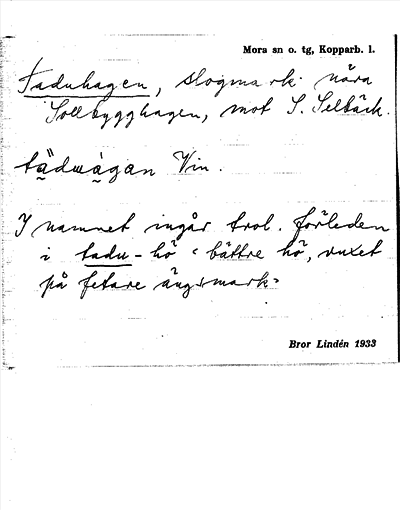 Mora sn o. tg, Kopparb. l.
Taduhagen, slogmark nära
Sollbygghagen, mot S. Selbäck.
tädwàgan Vin.
I namnet ingår trol. förleden
i tadu-hö "bättre hö, vuxet
på fetare ängsmark"
Bror Lindén 1933